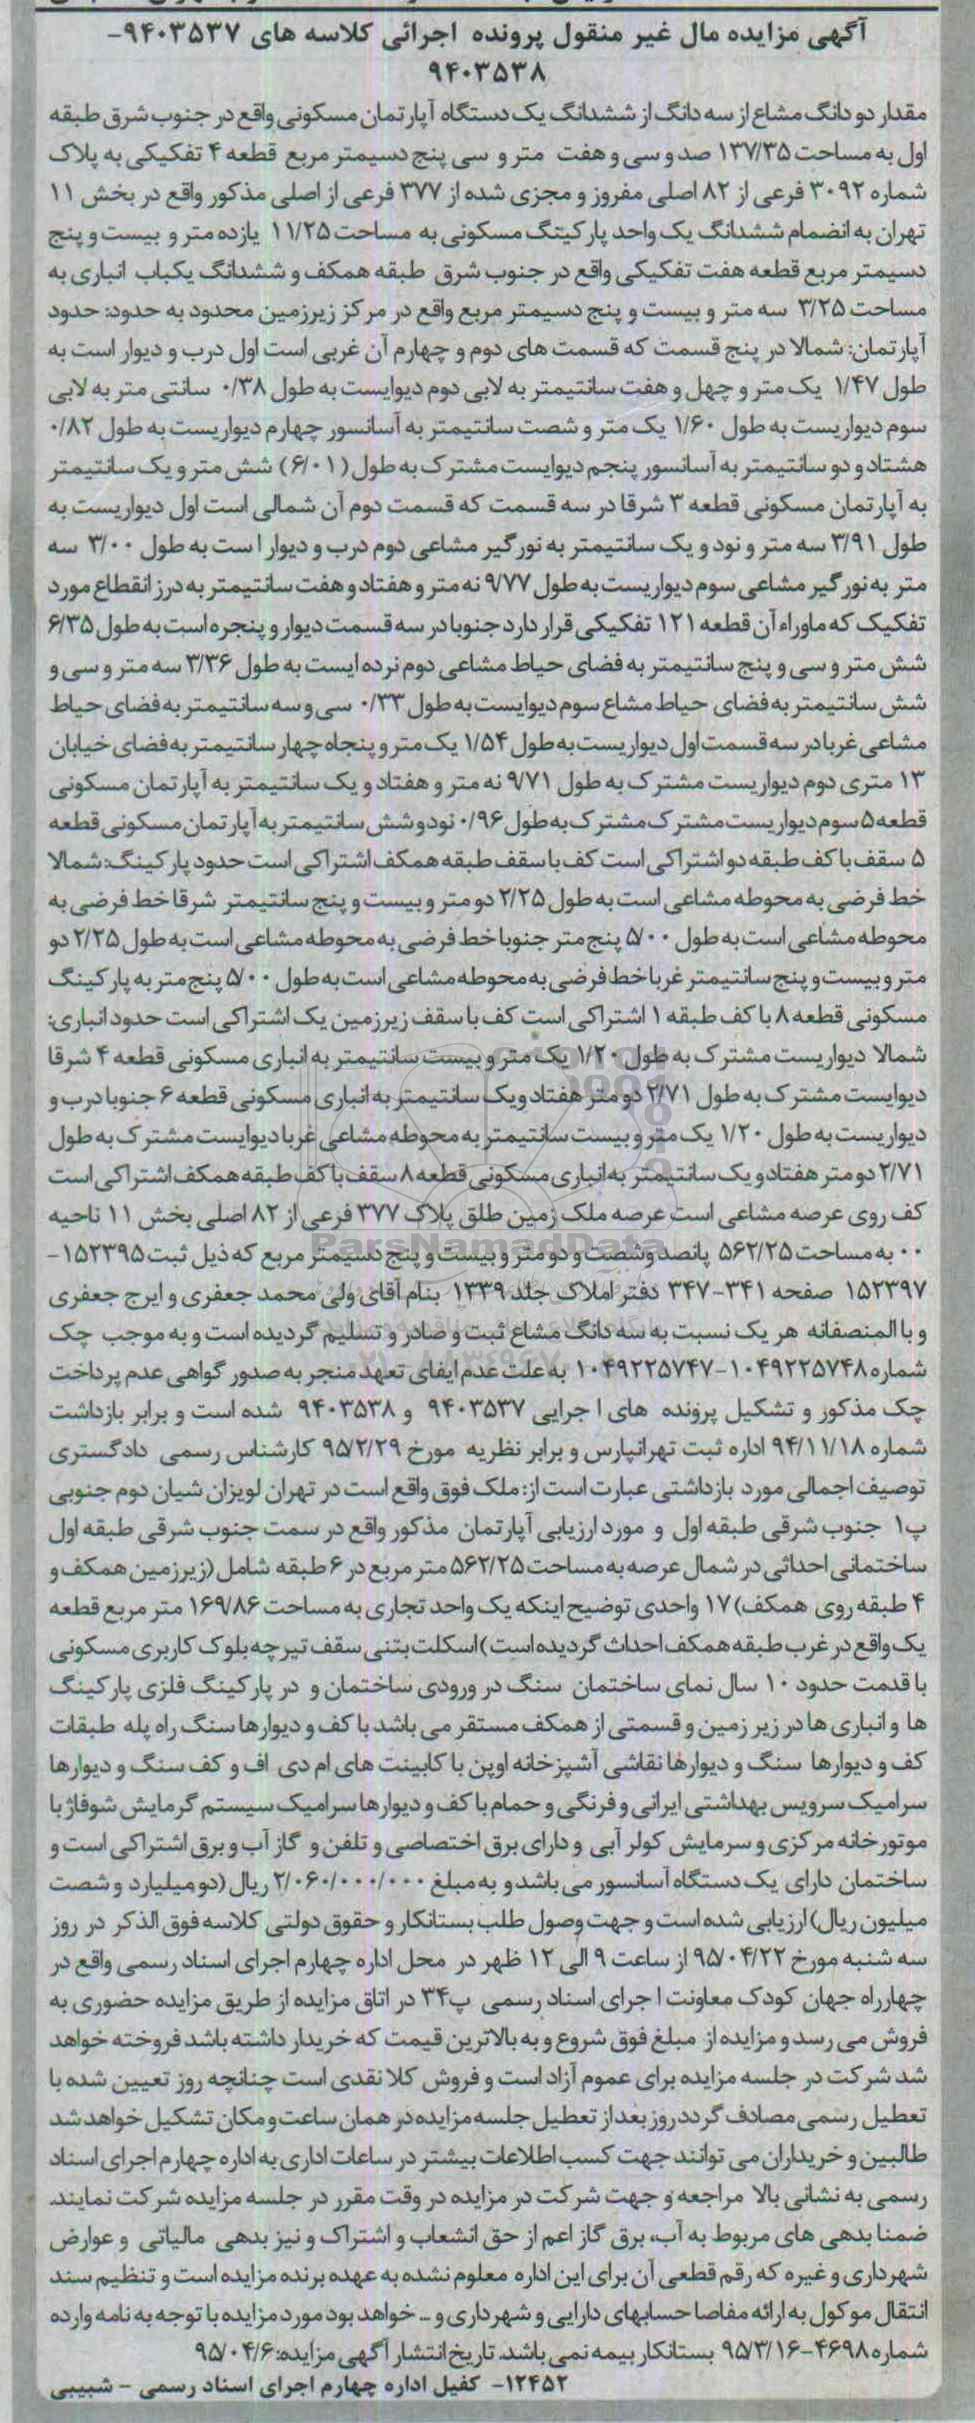 آگهی مزایده مال غیر منقول پرونده اجرائی کلاسه های ۹۴۰۳۵۳۷-
۹۴۰۳۵۳۸
مقدار دو دانگ مشاع از سه دانگ از ششدانگ یک دستگاه آپارتمان مسکونی واقع در جنوب شرق طبقه
اول به مساحت ۱۳۷/۳۵ صد و سی و هفت متر و سی پنج دسیمتر مربع قطعه ۴ تفکیکی به پلاک
شماره ۳۰۹۲ فرعی از ۸۲ اصلی مفروز و مجزی شده از ۳۷۷ فرعی از اصلی مذکور واقع در بخش ۱۱
تهران به انضمام ششدانگ یک واحد پارکیتگ مسکونی به مساحت ۱۱/۲۵ یازده متر و بیست و پنج
دسیمتر مربع قطعه هفت تفکیکی واقع در جنوب شرق طبقه همکف و ششدانگ یکباب انباری به
مساحت ۳/۲۵ سه متر و بیست و پنج دسیمتر مربع واقع در مرکز زیرزمین محدود به حدود: حدود
آپارتمان: شمالا در پنج قسمت که قسمت های دوم و چهارم آن غربی است اول درب و دیوار است به
طول ۱/۴۷ یک متر و چهل و هفت سانتیمتر به لابی دوم دیوایست به طول ۰/۳۸ سانتی متر به لابی
سوم دیواریست به طول ۱/۶۰ یک متر و شصت سانتیمتر به آسانسور چهارم دیواریست به طول ۰/۸۲
هشتاد و دو سانتیمتر به آسانسور پنجم دیوایست مشترک به طول (۶/۰۱) شش متر و یک سانتیمتر
به آپارتمان مسکونی قطعه ۳ شرقا در سه قسمت که قسمت دوم آن شمالی است اول دیواریست به
طول ۳/۹۱ سه متر و نود و یک سانتیمتر به نورگیر مشاعی دوم درب و دیوار ا ست به طول ۳/۰۰ سه
متر به نورگیر مشاعی سوم دیواریست به طول ۹/۷۷ نه متر و هفتاد و هفت سانتیمتر به درز انقطاع مورد
تفکیک که ماوراء آن قطعه ۱۲۱ تفکیکی قرار دارد جنوبا در سه قسمت دیوار و پنجره است به طول ۶/۳۵
شش متر و سی و پنج سانتیمتر به فضای حیاط مشاعی دوم نرده ایست به طول ۳/۳۶ سه متر و سی و
شش سانتیمتر به فضای حیاط مشاع سوم دیوایست به طول ۰/۳۳ سی و سه سانتیمتر به فضای حیاط
مشاعی غربا در سه قسمت اول دیواریست به طول ۱/۵۴ یک متر و پنجاه چهار سانتیمتر به فضای خیابان
۱۳ متری دوم دیواریست مشترک به طول ۹/۷۱ نه متر و هفتاد و یک سانتیمتر به آپارتمان مسکونی
قطعه ۵ سوم دیواریست مشترک مشترک به طول ۰/۹۶ نود و شش سانتیمتر به آپارتمان مسکونی قطعه
۵ سقف با کف طبقه دو اشتراکی است کف با سقف طبقه همکف اشتراکی است حدود پارکینگ: شمالا
خط فرضی به محوطه مشاعی است به طول ۲/۲۵ دو متر و بیست و پنج سانتیمتر شرقا خط فرضی به
محوطه مشاعی است به طول ۵/۰۰ پنج متر جنوبا خط فرضی به محوطه مشاعی است به طول ۲/۲۵ دو
متر و بیست و پنج سانتیمتر غربا خط فرضی به محوطه مشاعی است به طول ۵/۰۰ پنج متر به پارکینگ
مسکونی قطعه ۸ با کف طبقه ۱ اشتراکی است کف با سقف زیرزمین یک اشتراکی است حدود انباری:
شمالا دیواریست مشترک به طول ۱/۲۰ یک متر و بیست سانتیمتر به انباری مسکونی قطعه ۴ شرقا
دیوایست مشترک به طول ۲/۷۱ دو متر هفتاد و یک سانتیمتر به انباری مسکونی قطعه ۶ جنوبا درب و
دیواریست به طول ۱/۲۰ یک متر و بیست سانتیمتر به محوطه مشاعی غربا دیوایست مشترک به طول
۲/۷۱ دو متر هفتاد و یک سانتیمتر به انباری مسکونی قطعه ۸ سقف با کف طبقه همکف اشتراکی است
کف روی عرصه مشاعی است عرصه ملک زمین طلق پلاک ۳۷۷ فرعی از ۸۲ اصلی بخش ۱۱ ناحیه
۰۰ به مساحت ۵۶۲/۲۵ پانصد و شصت و دو متر و بیست و پنج دسیمتر مربع که ذیل ثبت ۱۵۲۳۹۵-
۱۵۲۳۹۷ صفحه ۳۴۱-۳۴۷ دفتر املاک جلد ۱۳۳۹ بنام آقای ولی محمد جعفری و ایرج جعفری
و با المنصفانه هر یک نسبت به سه دانگ مشاع ثبت و صادر و تسلیم گردیده است و به موجب چک
شماره ۱۰۴۹۲۲۵۷۴۸-۱۰۴۹۲۲۵۷۴۷ به علت عدم ایفای تعهد منجر به صدور گواهی عدم پرداخت
چک مذکور و تشکیل پرونده های ا جرایی ۹۴۰۳۵۳۷ و ۹۴۰۳۵۳۸ شده است و برابر بازداشت
شماره ۹۴/۱۱/۱۸ اداره ثبت تهرانپارس و برابر نظریه مورخ ۹۵/۲/۲۹ کارشناس رسمی دادگستری
توصیف اجمالی مورد بازداشتی عبارت است از: ملک فوق واقع است در تهران لویزان شیان دوم جنوبی
پ۱ جنوب شرقی طبقه اول و مورد ارزیابی آپارتمان مذکور واقع در سمت جنوب شرقی طبقه اول
ساختمانی احداثی در شمال عرصه به مساحت ۵۶۲/۲۵ متر مربع در ۶ طبقه شامل (زیرزمین همکف و
۴ طبقه روی همکف) ۱۷ واحدی توضیح اینکه یک واحد تجاری به مساحت ۱۶۹/۸۶ متر مربع قطعه
یک واقع در غرب طبقه همکف احداث گردیده است) اسکلت بتنی سقف تیرچه بلوک کاربری مسکونی
با قدمت حدود ۱۰ سال نمای ساختمان سنگ در ورودی ساختمان و در پارکینگ فلزی پارکینگ
ها و انباری ها در زیر زمین و قسمتی از همکف مستقر می باشد با کف و دیوارها سنگ راه پله طبقات
کف و دیوارها سنگ و دیوارها نقاشی آشپزخانه اوپن با کابینت های ام دی اف و کف سنگ و دیوارها
سرامیک سرویس بهداشتی ایرانی و فرنگی و حمام با کف و دیوارها سرامیک سیستم گرمایش شوفاژ با
موتورخانه مرکزی و سرمایش کولر آبی و دارای برق اختصاصی و تلفن و گاز آب و برق اشتراکی است و
ساختمان دارای یک دستگاه آسانسور می باشد و به مبلغ ۲/۰۶۰/۰۰۰/۰۰۰ ریال (دو میلیارد و شصت
میلیون ریال) ارزیابی شده است و جهت وصول طلب بستانکار و حقوق دولتی کلاسه فوق الذکر در روز
سه شنبه مورخ ۹۵/۰۴/۲۲ از ساعت ۹ الی ۱۲ ظهر در محل اداره چهارم اجرای اسناد رسمی واقع در
چهارراه جهان کودک معاونت ا جرای اسناد رسمی پ۳۴ در اتاق مزایده از طریق مزایده حضوری به
فروش می رسد و مزایده از مبلغ فوق شروع و به بالاترین قیمت که خریدار داشته باشد فروخته خواهد
شد شرکت در جلسه مزایده برای عموم آزاد است و فروش کلا نقدی است چنانچه روز تعیین شده با
تعطیل رسمی مصادف گردد روز بعد از تعطیل جلسه مزایده در همان ساعت و مکان تشکیل خواهد شد
طالبین و خریداران می توانند جهت کسب اطلاعات بیشتر در ساعات اداری به اداره چهارم اجرای اسناد
رسمی به نشانی بالا مراجعه و جهت شرکت در مزایده در وقت مقرر در جلسه مزایده شرکت نمایند.
ضمنا بدهی های مربوط به آب، برق گاز اعم از حق انشعاب و اشتراک و نیز بدهی مالیاتی و عوارض
شهرداری و غیره که رقم قطعی آن برای این اداره معلوم نشده به عهده برنده مزایده است و تنظیم سند
انتقال موکول به ارائه مفاصا حسابهای دارایی و شهرداری و ... خواهد بود مورد مزایده با توجه به نامه وارده
شماره ۴۶۹۸-۹۵/۳/۱۶ بستانکار بیمه نمی باشد. تاریخ انتشار آگهی مزایده: ۹۵/۰۴/۶
۱۲۴۵۲- کفیل اداره چهارم اجرای اسناد رسمی - شبیبی
ParsNamadData